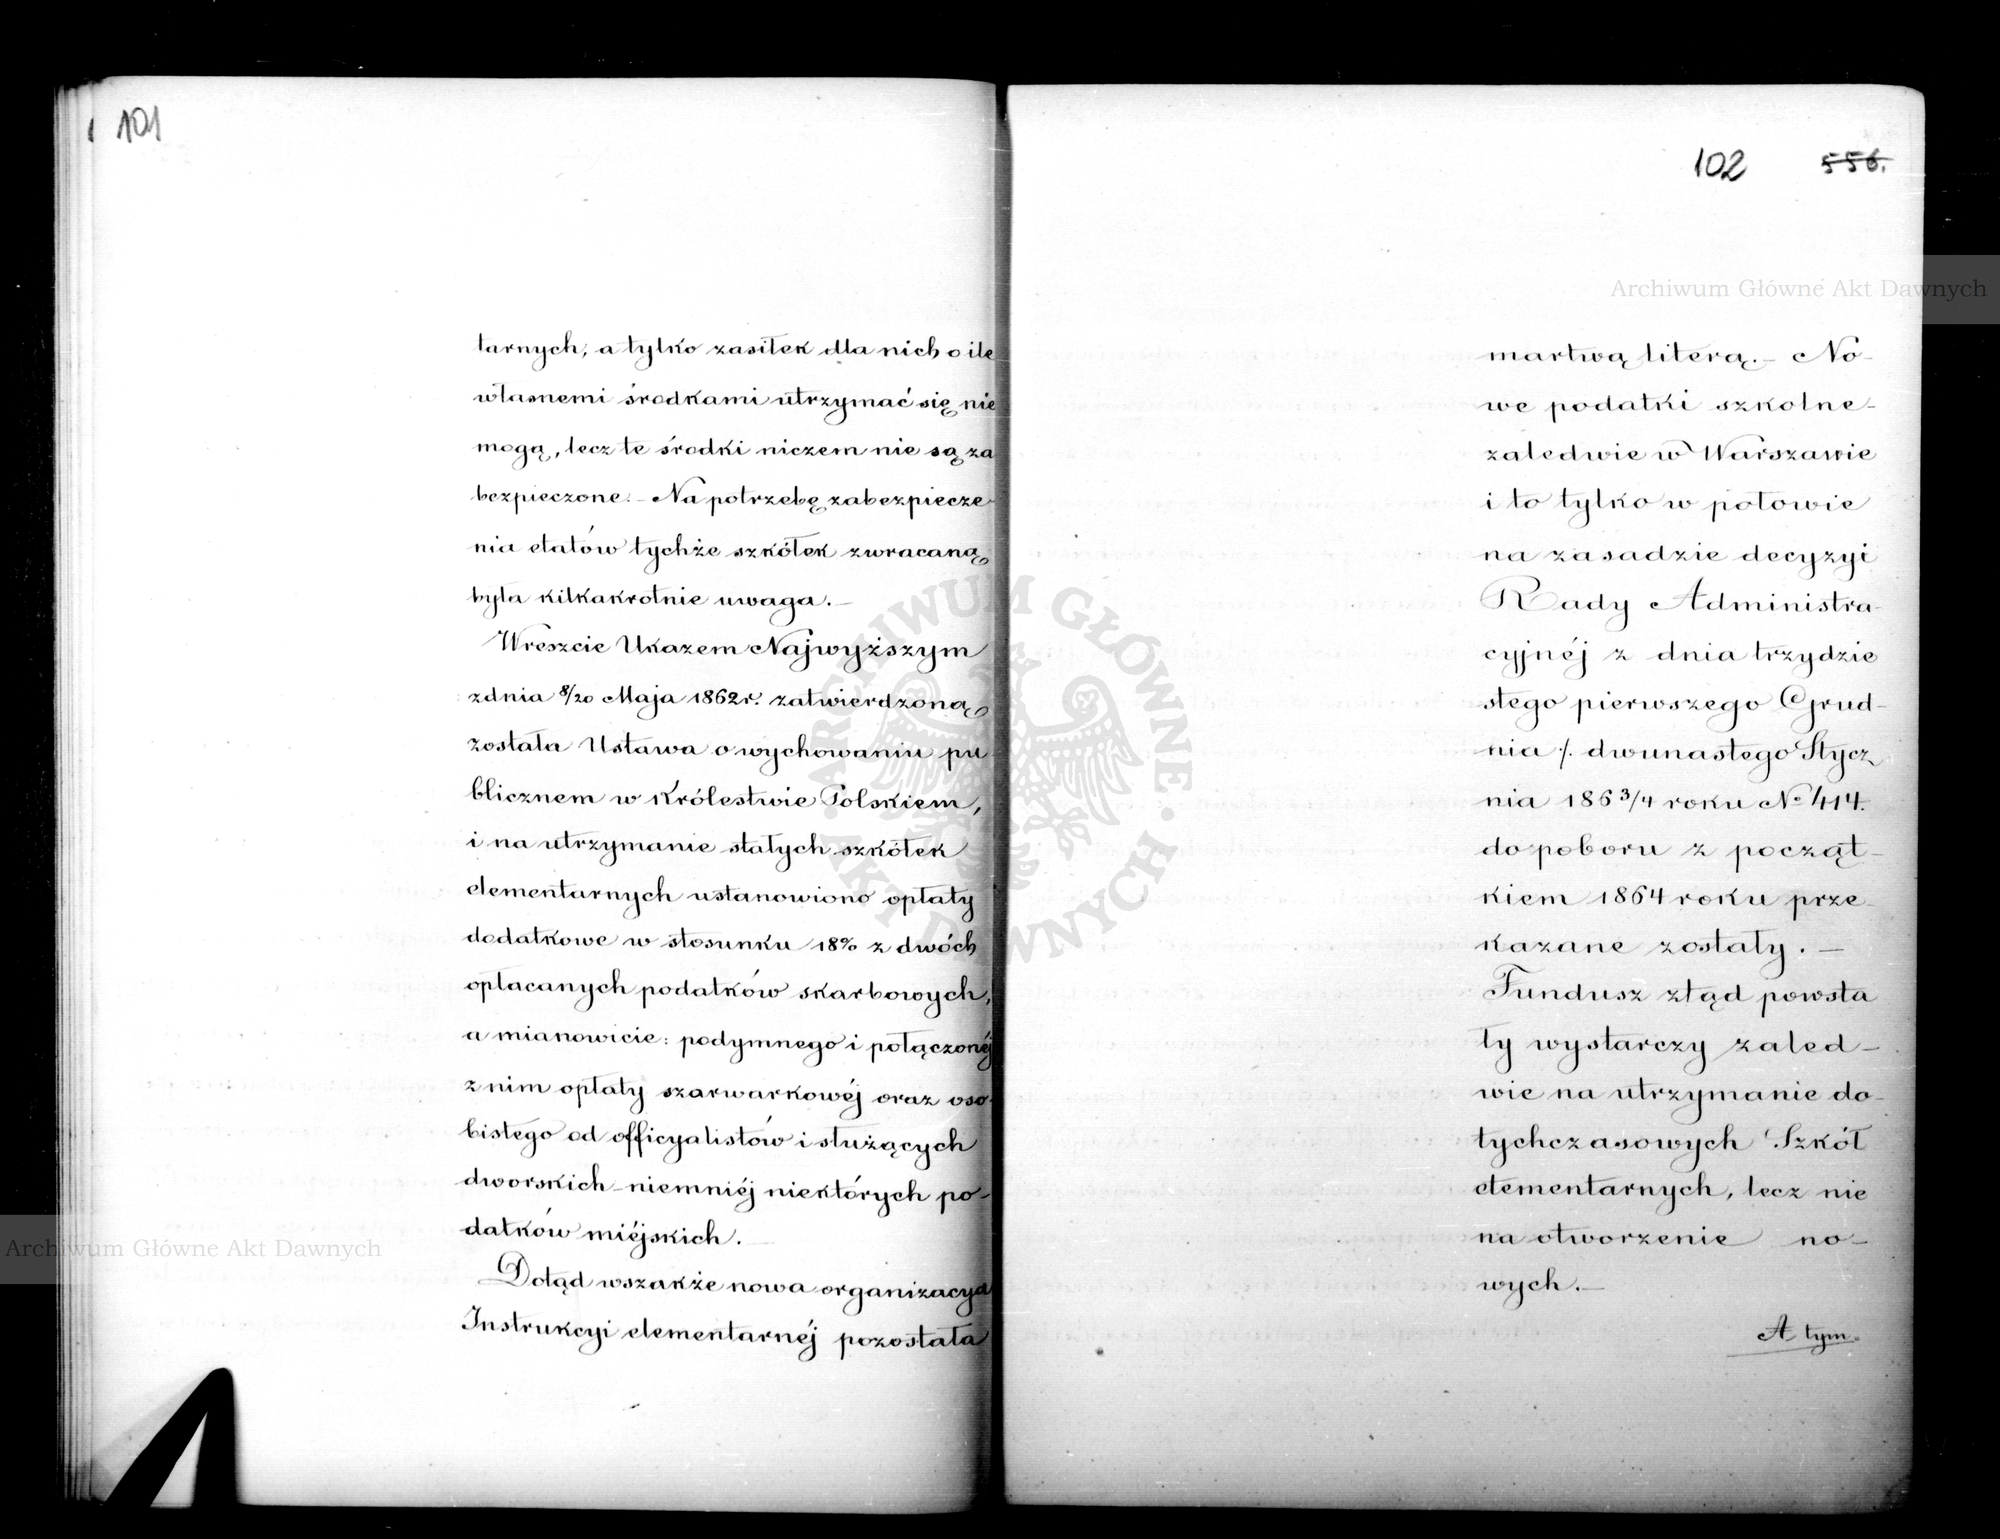 101
tarnych, a tylko zasiłek dla nich o ile
własnemi środkami utrzymać się nie
mogą, lecz te środki niczem nie są za
bezpieczone. – Na potrzebę zabezpiecze
nia etatów tychże szkółek zwracaną
była kilkakrotnie uwaga. –
Wreszcie Ukazem Najwyższym
z dnia 8/20 Maja 1862 r. zatwierdzoną
została Ustawa o wychowaniu pu
blicznem w Królestwie Polskiem,
i na utrzymanie stałych szkółek
elementarnych ustanowiono opłaty
dodatkowe w stosunku 18% z dwóch
opłacanych podatków skarbowych,
a mianowicie: podymnego i połączonéj
z nim opłaty szarwarkowéj oraz oso-
bistego od officyalistów i służących
dworskich niemniéj niektórych po-
datków miéjskich. –
Dotąd wszakże nowa organizacya
Instrukcyi elementarnéj pozostała
102 556.
martwą literą. – No-
we podatki szkolne –
zaledwie w Warszawie
i to tylko w połowie
na zasadzie decyzyi
Rady Administra-
cyjnéj z dnia trzydzie
stego pierwszego Grud-
nia /. dwunastego Stycz
nia 186 3/4 roku No 414.
do poboru z począt-
kiem 1864 roku prze-
kazane zostały. –
Fundusz ztąd powsta
ły wystarczy zaled –
wie na utrzymanie do-
tychczasowych Szkół
elementarnych, lecz nie
na otworzenie no –
wych. –
A tym.
Archiwum Główne Akt Dawnych
Archiwum Główne Akt Dawnych
ARCHIWUM GŁÓWNE · AKT DAWNYCH ·